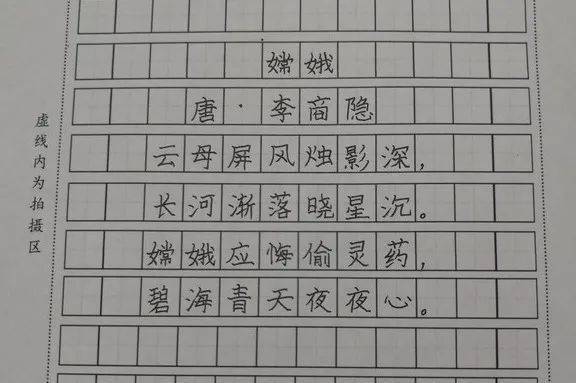 嫦娥
唐·李商隐
云母屏风烛影深，
长河渐落晓星沉。
嫦娥应悔偷灵药，
碧海青天夜夜心。
虚线内为拍摄区